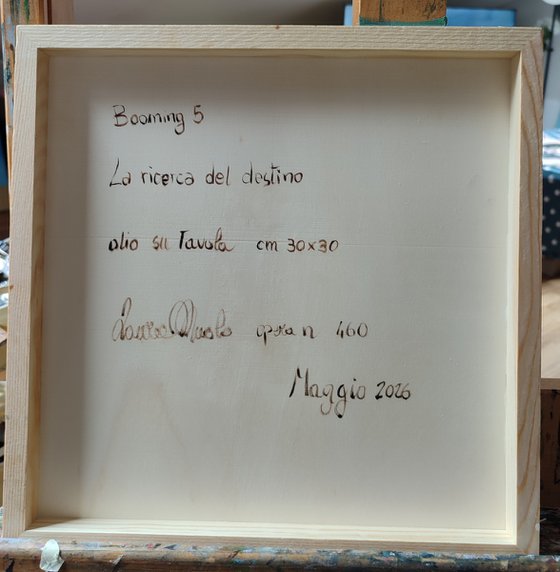 Booming 5
La ricerca del destino
olio su Tavola cm 30x30
opera n 460
Maggio 2026